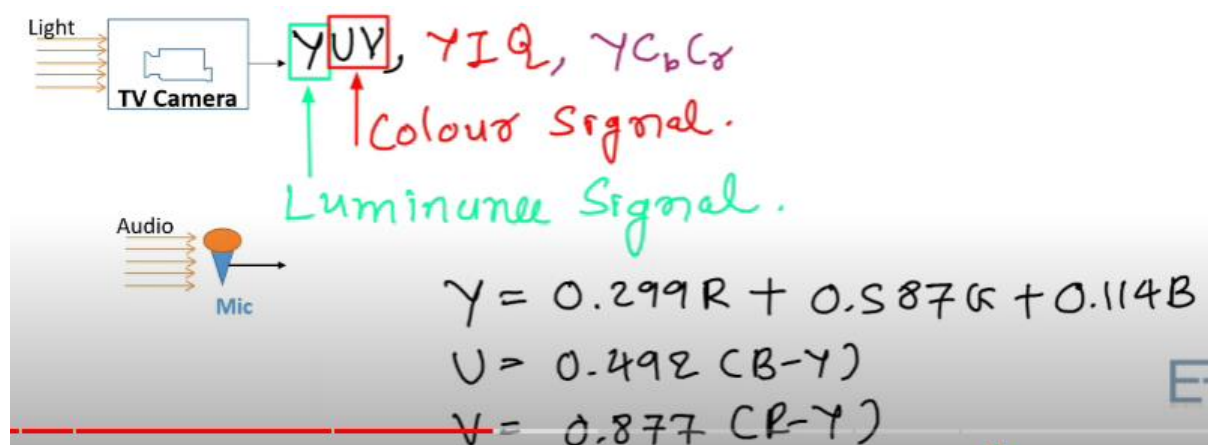 Light
YUV, YIQ, YCbCr
TV Camera
Colour Signal.
Luminance Signal.
Audio
Mic
Y = 0.299R + 0.587G + 0.114B
U = 0.492 (B-Y)
V = 0.877 (R-Y)